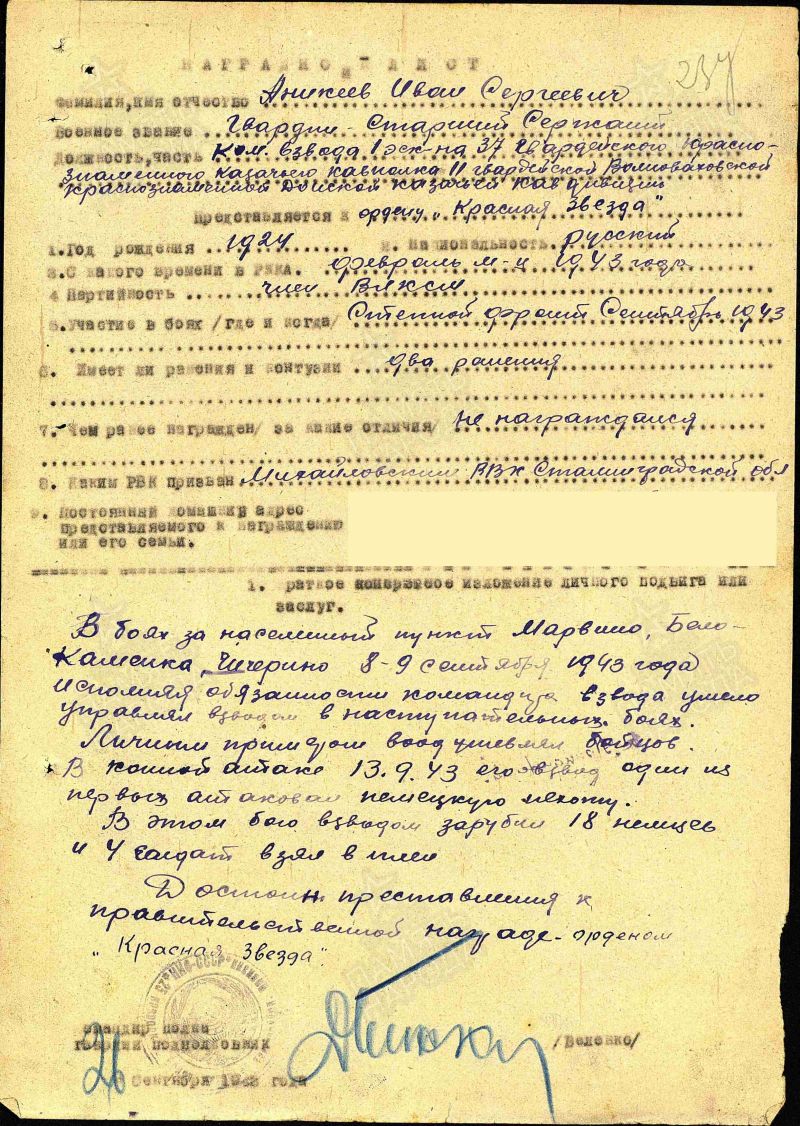 НАГРАДНОЙ ЛИСТ
237
Фамилия, имя отчество Аникеев Иван Сергеевич
Военное звание Гвардии Старший Сержант
Должность, часть Ком. взвода 1 эск-на 37 Гвардейского Красно-
знаменного Казачьего кавполка 11 гвардейской Волновахской
краснознаменной Донской Казачьей кав дивизии
Представляется к ордену „Красная Звезда"
1. Год рождения 1924 2. Национальность русский
3. С какого времени в РККА. февраль м-ц 1943 года
4 Партийность член ВЛКСМ
5. Участие в боях /где и когда/ Степной фронт Сентябрь 1943
6. Имеет ли ранения и контузии два ранения
7. Чем ранее награжден/ за какие отличия/ не награждался
8. Каким РВК призван Михайловским РВК Сталинградской обл
9. Постоянный домашний адрес
представляемого к награждению
или его семьи.
1. раткое конкретное изложение личного подвига или
заслуг.
В боях за населенный пункт Марвино, Бело-
Каменка, Чичерино 8-9 сентября 1943 года
исполняя обязанности командира взвода умело
управлял взводом в наступательных боях.
Личным примером воодушевлял бойцов.
В конной атаке 13.9.43 его взвод один из
первых атаковал немецкую пехоту.
В этом бою взводом зарубил 18 немцев
и 4 солдат взял в плен
Достоин преставления к
правительственной награде - орденом
„Красная Звезда".
командир полка
гвардии подполковник /Беленко/
26 Сентября 1943 года